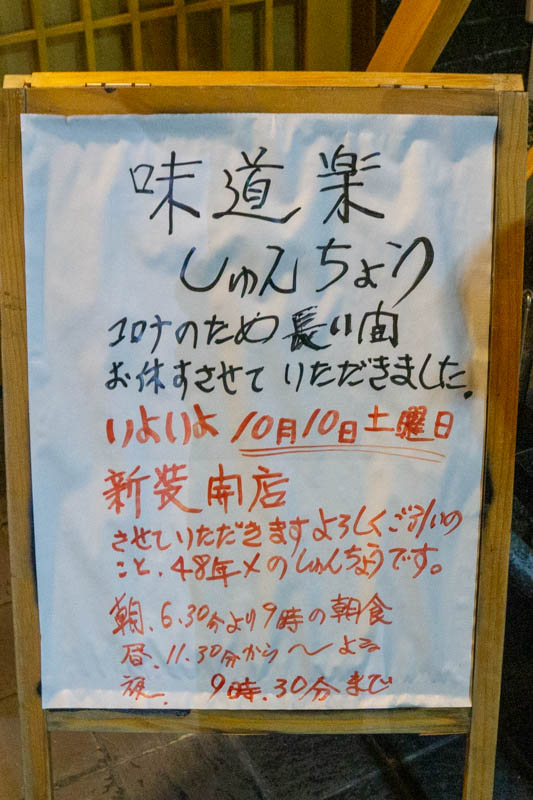 味道楽
しゅんちょう
コロナのため長い間
お休すさせていただきました。
いよいよ 10月10日土曜日
新装開店
させていただきますよろしくご引いの
こと、48年メのしゅんちょうです。
朝、6.30分より9時の朝食
昼、11.30分から〜よる
夜、 9時、30分まで